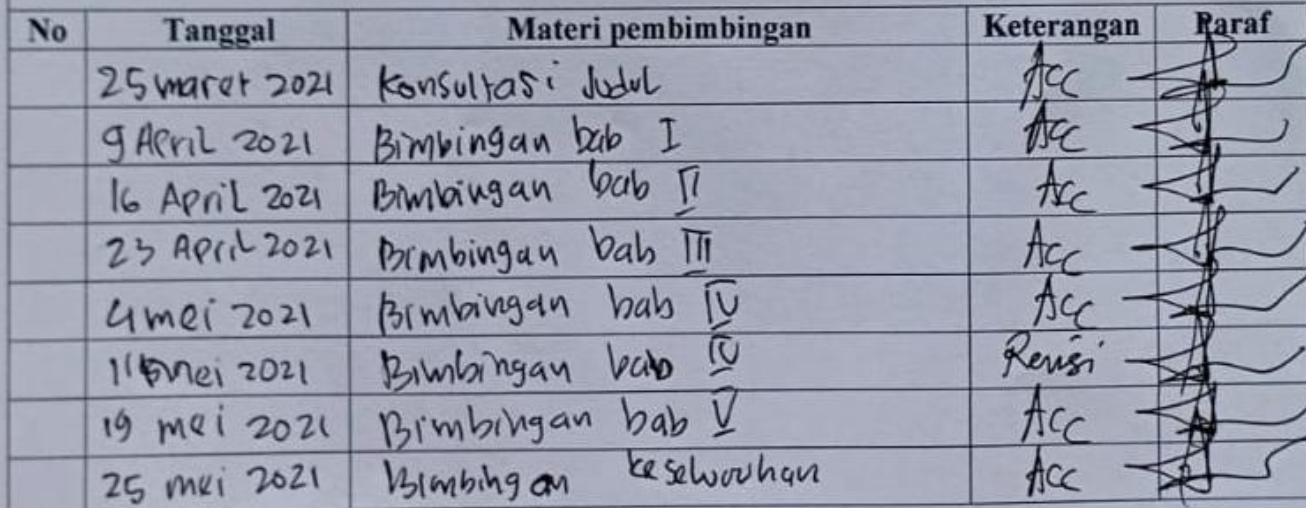 No Tanggal Materi pembimbingan Keterangan Paraf
25 maret 2021 Konsultasi Judul Acc
9 April 2021 Bimbingan bab I Acc
16 April 2021 Bimbingan bab II Acc
23 April 2021 Bimbingan bab III Acc
4 mei 2021 Bimbingan bab IV Acc
mei 2021 Bimbingan bab IV Revisi
19 mei 2021 Bimbingan bab V Acc
25 mei 2021 Bimbingan keseluruhan Acc